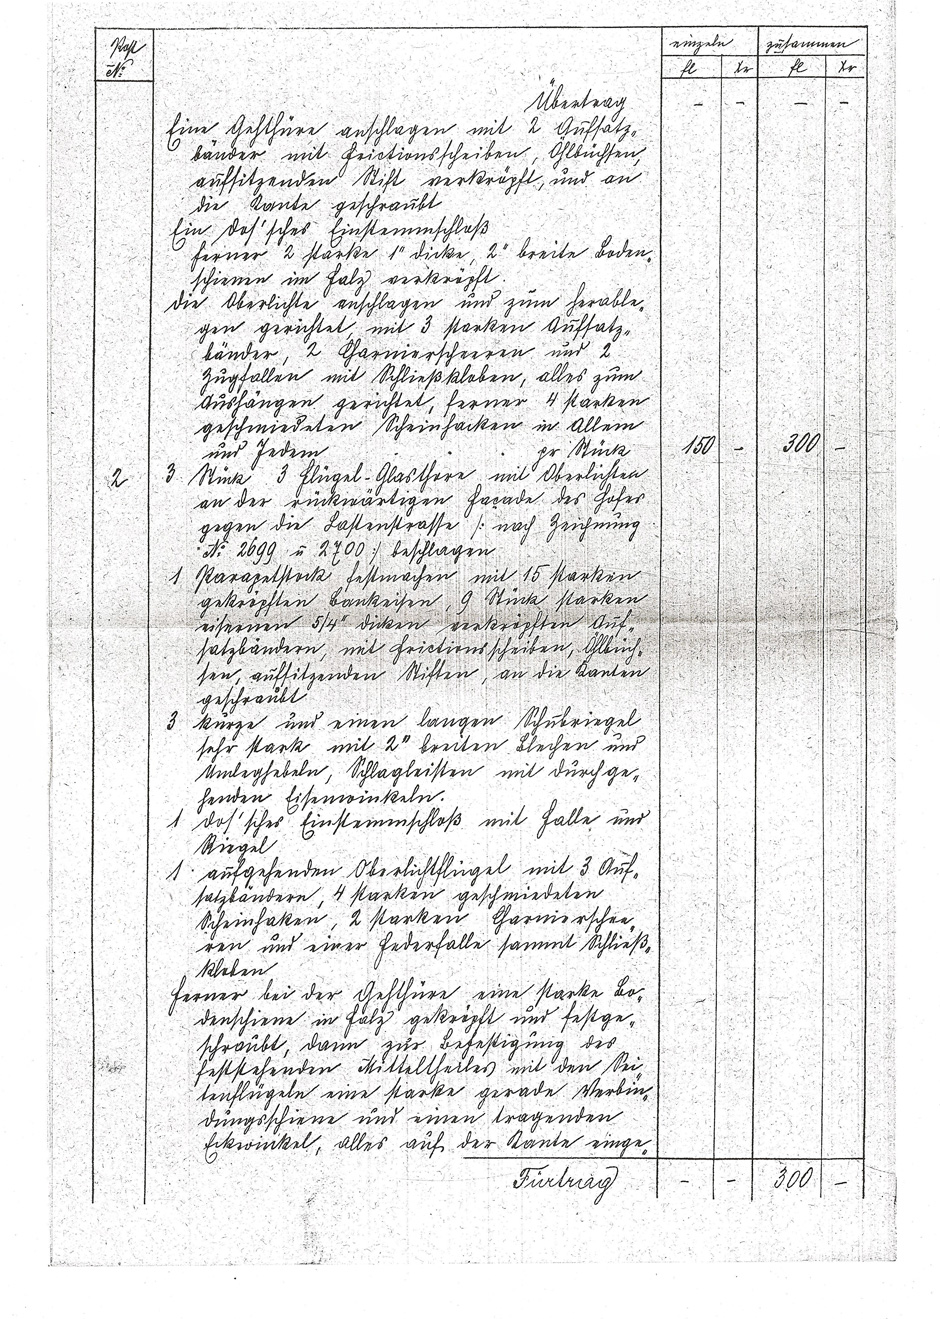 Post
No.
einzeln zusammen
fl xr fl xr
Übertrag - - - -
Eine Gehthüre anschlagen mit 2 Aufsatz„
bänder mit Frictionsscheiben, Öhlbüchsen,
aufsitzenden Stift verkröpft, und an
die Kante geschraubt
Ein Dos'sches Einstemmschloß
ferner 2 starke 1" dicke, 2" breite Boden„
schienen im Falz verkröpft.
Die Oberlichte anschlagen und zum herable„
gen gerichtet, mit 3 starken Aufsatz„
bänder, 2 Charnierscheeren und 2
Zugfallen mit Schließkloben, alles zum
Aushängen gerichtet, ferner 4 starken
geschmiedeten Scheinhacken in Allem
und Jedem pr Stück 150 - 300 -
2 3 Stück 3 Flügel-Glasthore mit Oberlichten
an der rückwärtigen Façade des Hofes
gegen die Lastenstrasse /: nach Zeichnung
No. 2699 u 2700 :/ beschlagen
1 Parapetstock festmachen mit 15 starken
gekröpften Bankeisen, 9 Stück starken
eisernen 5/4" dicken verkröpften Auf„
satzbändern, mit Frictionsscheiben, Öhlbüch„
sen, aufsitzenden Stiften, an die Kanten
geschraubt
3 kurze und einen langen Schubriegel
sehr stark mit 2" breiten Blechen und
Umleghebeln, Schlagleisten mit durchge„
henden Eisenwinkeln.
1 Dos'sches Einstemmschloß mit Falle und
Riegel
1 aufgehenden Oberlichtflügel mit 3 Auf„
satzbändern, 4 starken geschmiedeten
Scheinhaken, 2 starken Charnierschee„
ren und einer Federfalle sammt Schließ„
kloben
Ferner bei der Gehthüre eine starke Bo„
denschiene in Falz gekröpft und festge„
schraubt, dann zur Befestigung des
feststehenden Mitteltheiles mit den Sei„
tenflügeln eine starke gerade Verbin„
dungsschiene und einen tragenden
Eckwinkel, alles auf der Kante einge„
Fürtrag - - 300 -